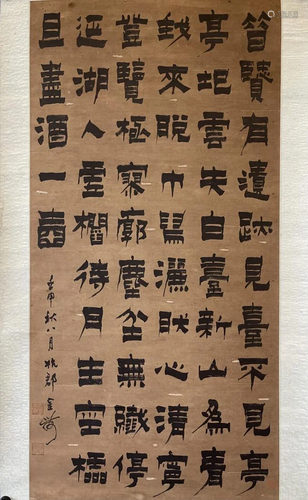 昔賢有遺跡見臺不見亭
亭圯雲失白臺新山為青
我來脫巾舄灑然心清寧
登覽極寥廓塵坌無纖停
延湖入虛欄待月生空
且盡酒一壺
壬申秋八月杭郡金